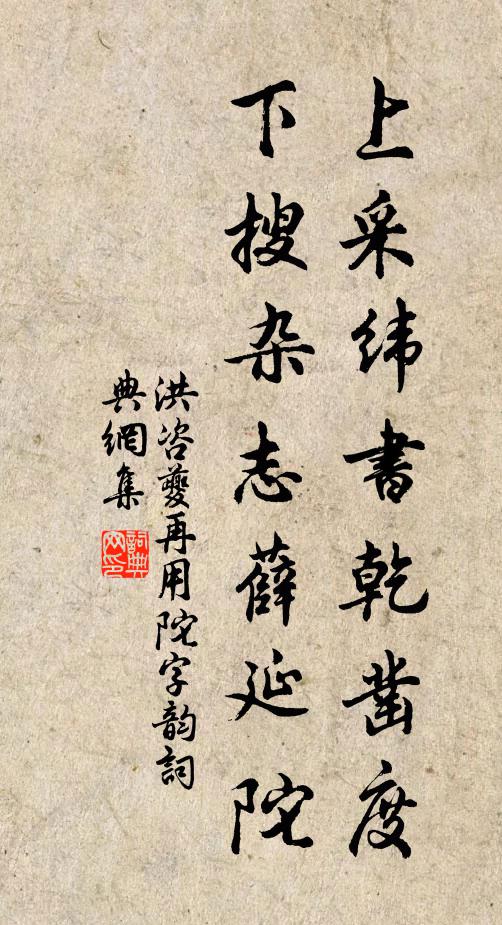 上采纬書乾凿度
下搜杂志薛延陀
洪咨夔再用陀字韵詞
典網集
詞典網印